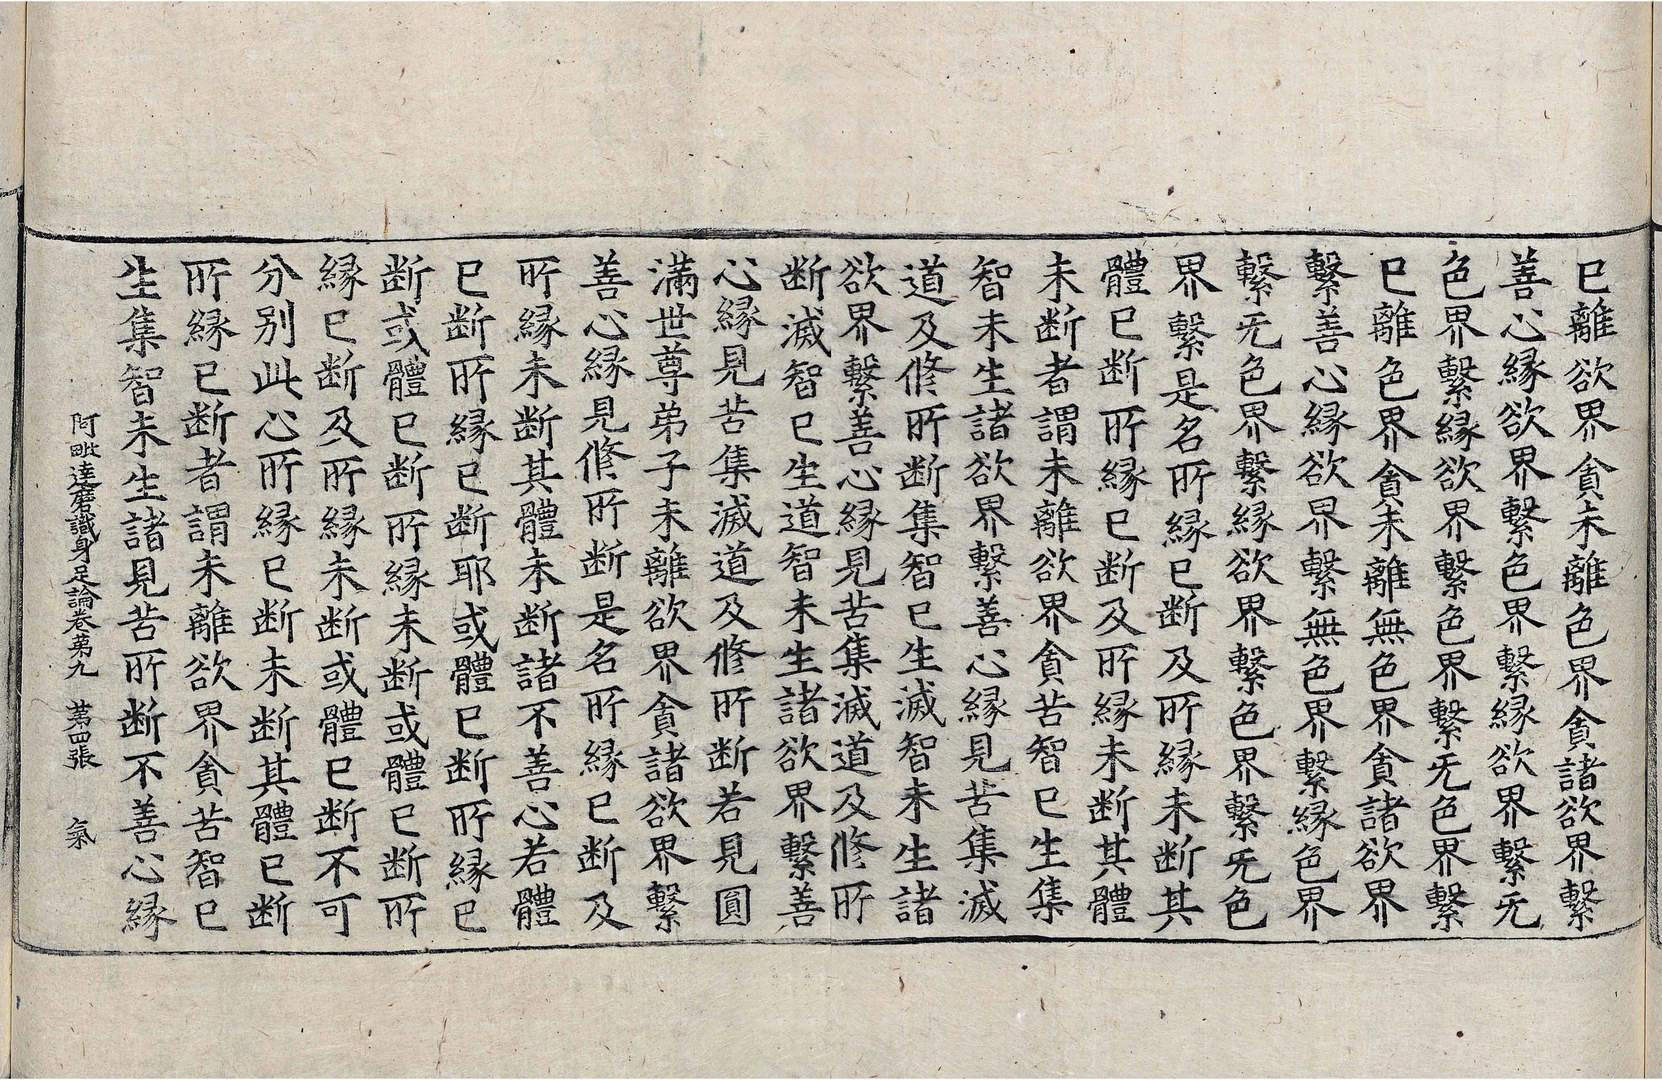 已離欲界貪未離色界貪諸欲界繫
善心緣欲界繫色界繫緣欲界繫无
色界繫緣欲界繫色界繫无色界繫
已離色界貪未離無色界貪諸欲界
繫善心緣欲界繫無色界繫緣色界
繫无色界繫緣欲界繫色界繫无色
界繫是名所緣已斷及所緣未斷其
體已斷所緣已斷及所緣未斷其體
未斷者謂未離欲界貪苦智已生集
智未生諸欲界繫善心緣見苦集滅
道及修所斷集智已生滅智未生諸
欲界繫善心緣見苦集滅道及修所
斷滅智已生道智未生諸欲界繫善
心緣見苦集滅道及修所斷若見圓
滿世尊弟子未離欲界貪諸欲界繫
善心緣見修所斷是名所緣已斷及
所緣未斷其體未斷諸不善心若體
已斷所緣已斷耶或體已斷所緣已
斷或體已斷所緣未斷或體已斷所
緣已斷及所緣未斷或體已斷不可
分別此心所緣已斷未斷其體已斷
所緣已斷者謂未離欲界貪苦智已
生集智未生諸見苦所斷不善心緣
阿毗達磨識身足論卷苐九　苐四張　氣